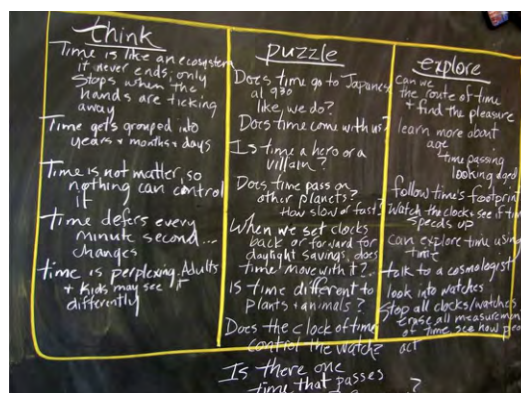 think
Time is like an ecosystem
it never ends, only
stops when the
hands are ticking
away
Time gets grouped into
years + months + days
Time is not matter, so
nothing can control
it
Time defers every
minute second...
changes
time is perplexing. Adults
+ kids may see it
differently
puzzle
Does time go to Japanese
at 9:30
like, we do?
Does time come with us?
Is time a hero or a
villain?
Does time pass on
other planets?
How slow or fast?
When we set clocks
back or forward for
daylight savings, does
time move with it?..
Is time different to
plants + animals?
Does the clock of time
control the watch?
Is there one
time that passes
?
explore
can we
the route of time
+ find the pleasure
learn more about
age
time passing
looking aged
follow time's footprint
Watch the clocks see if time
speeds up
can explore time using
time
talk to a cosmologist
look into watches
Stop all clocks/watches
erase all measurement
of time, see how
act